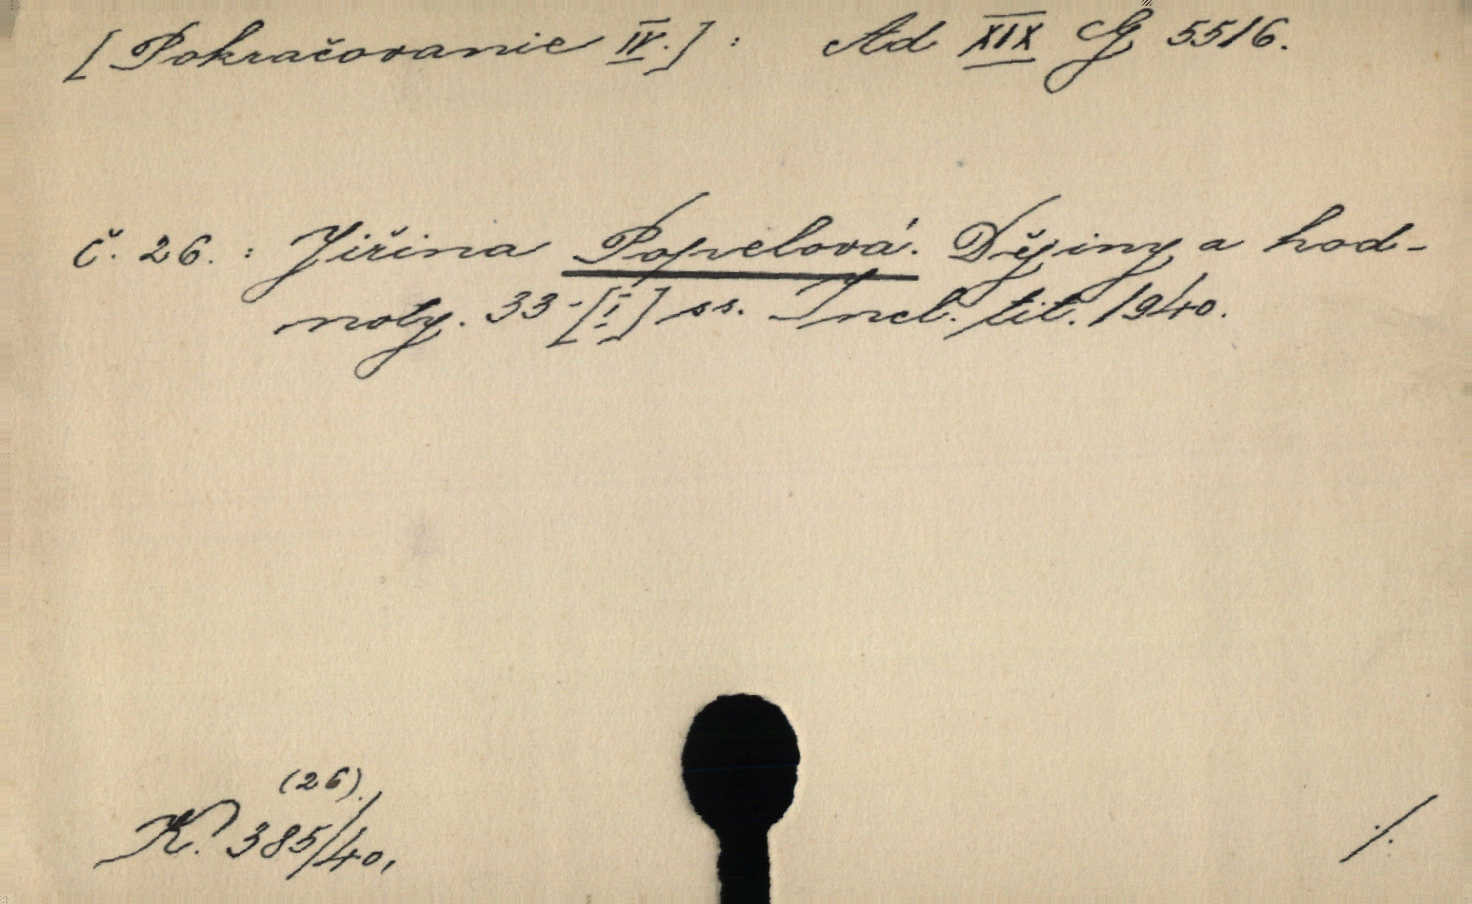 [Pokračovanie IV.]: Ad XIX G 5516.
č. 26. : Jiřina Popelová. Dějiny a hod-
noty. 33-[I] ss. Incl. tit. 1940.
(26).
K. 385/40,
./.